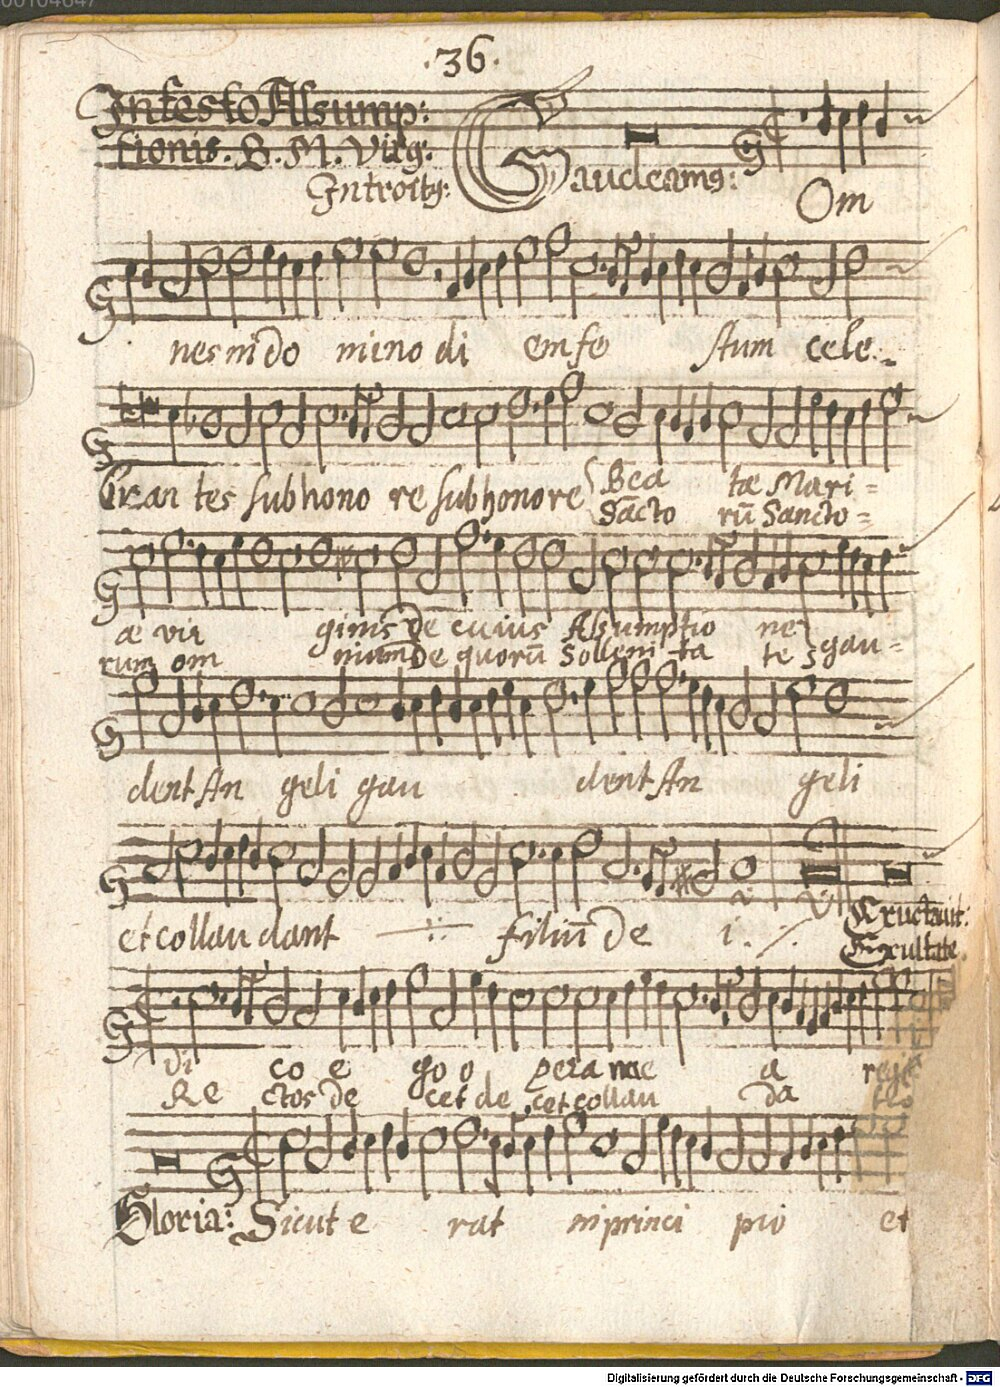 ·36·
In festo Assump:
tionis. B. M. Virg:
Introitꝰ:
Gaudeamꝰ:
Om
nes in do mino di em fe stum cele
bran tes sub hono re sub honore Bea tæ Mari=
Sācto rū Sancto=
æ vir ginis De cuius Assumptio ne
rum om nium De quorū Solleni ta te gau=
dent An geli gau dent An geli
et collau dant filiū De i. Eructavit:
Exultate.
Di co e go o pera me a regi
Re ctos de cet de cet collau da tio
Gloria: Sicut e rat in princi pio et
Digitalisierung gefördert durch die Deutsche Forschungsgemeinschaft - DFG